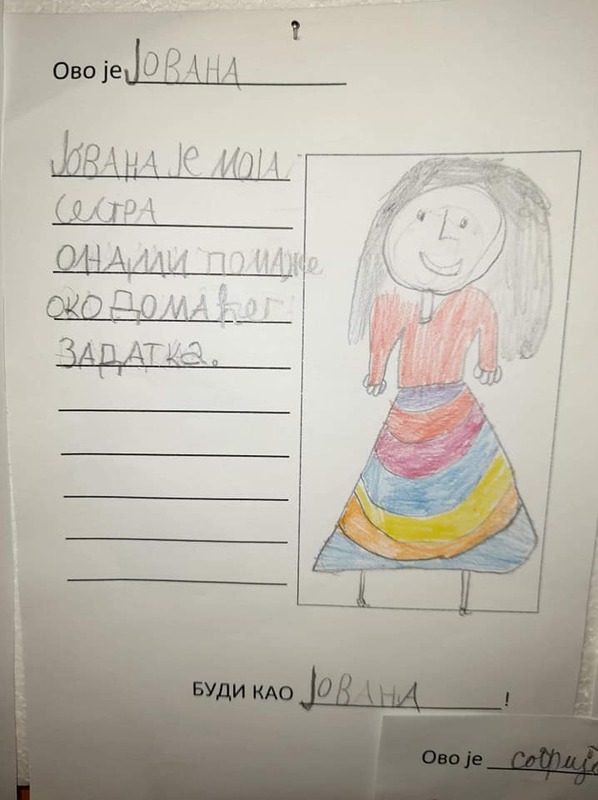 Ово је ЈОВАНА
ЈОВАНА ЈЕ МОЈА
СЕСТРА
ОНА МИ ПОМАЖЕ
ОКО ДОМАЋЕГ
ЗАДАТКА.
БУДИ КАО ЈОВАНА!
Ово је